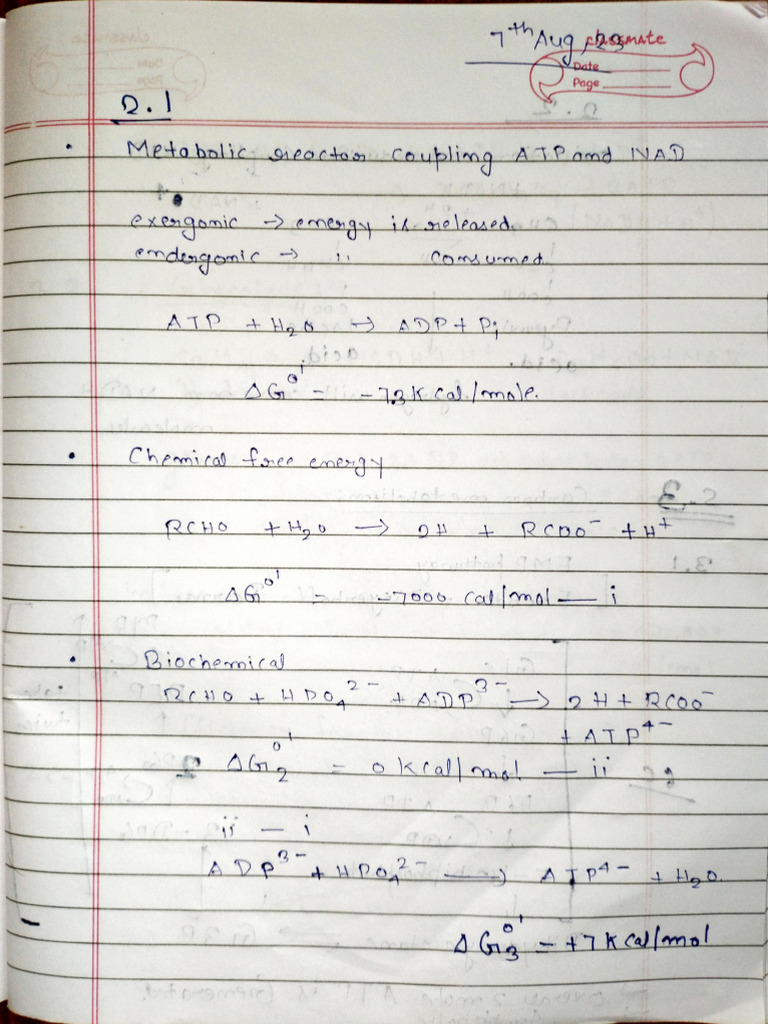 7th Aug, 23
classmate
Date
Page
2.1
• Metabolic reactor coupling ATP and NAD
exergonic → energy is released.
endergonic → ii consumed.
ATP + H2O → ADP + Pi
ΔG0' = -7.3 K cal/mole.
• Chemical free energy
RCHO + H2O → 2H + RCOO- + H+
ΔG0' = -7000 cal/mol — i
• Biochemical
RCHO + HPO4 2- + ADP3- → 2H + RCOO-
+ ATP4-
ΔG2 0' = 0 kcal/mol — ii
ii — i
ADP3- + HPO4 2- → ATP4- + H2O.
ΔG3 0' = +7 K cal/mol